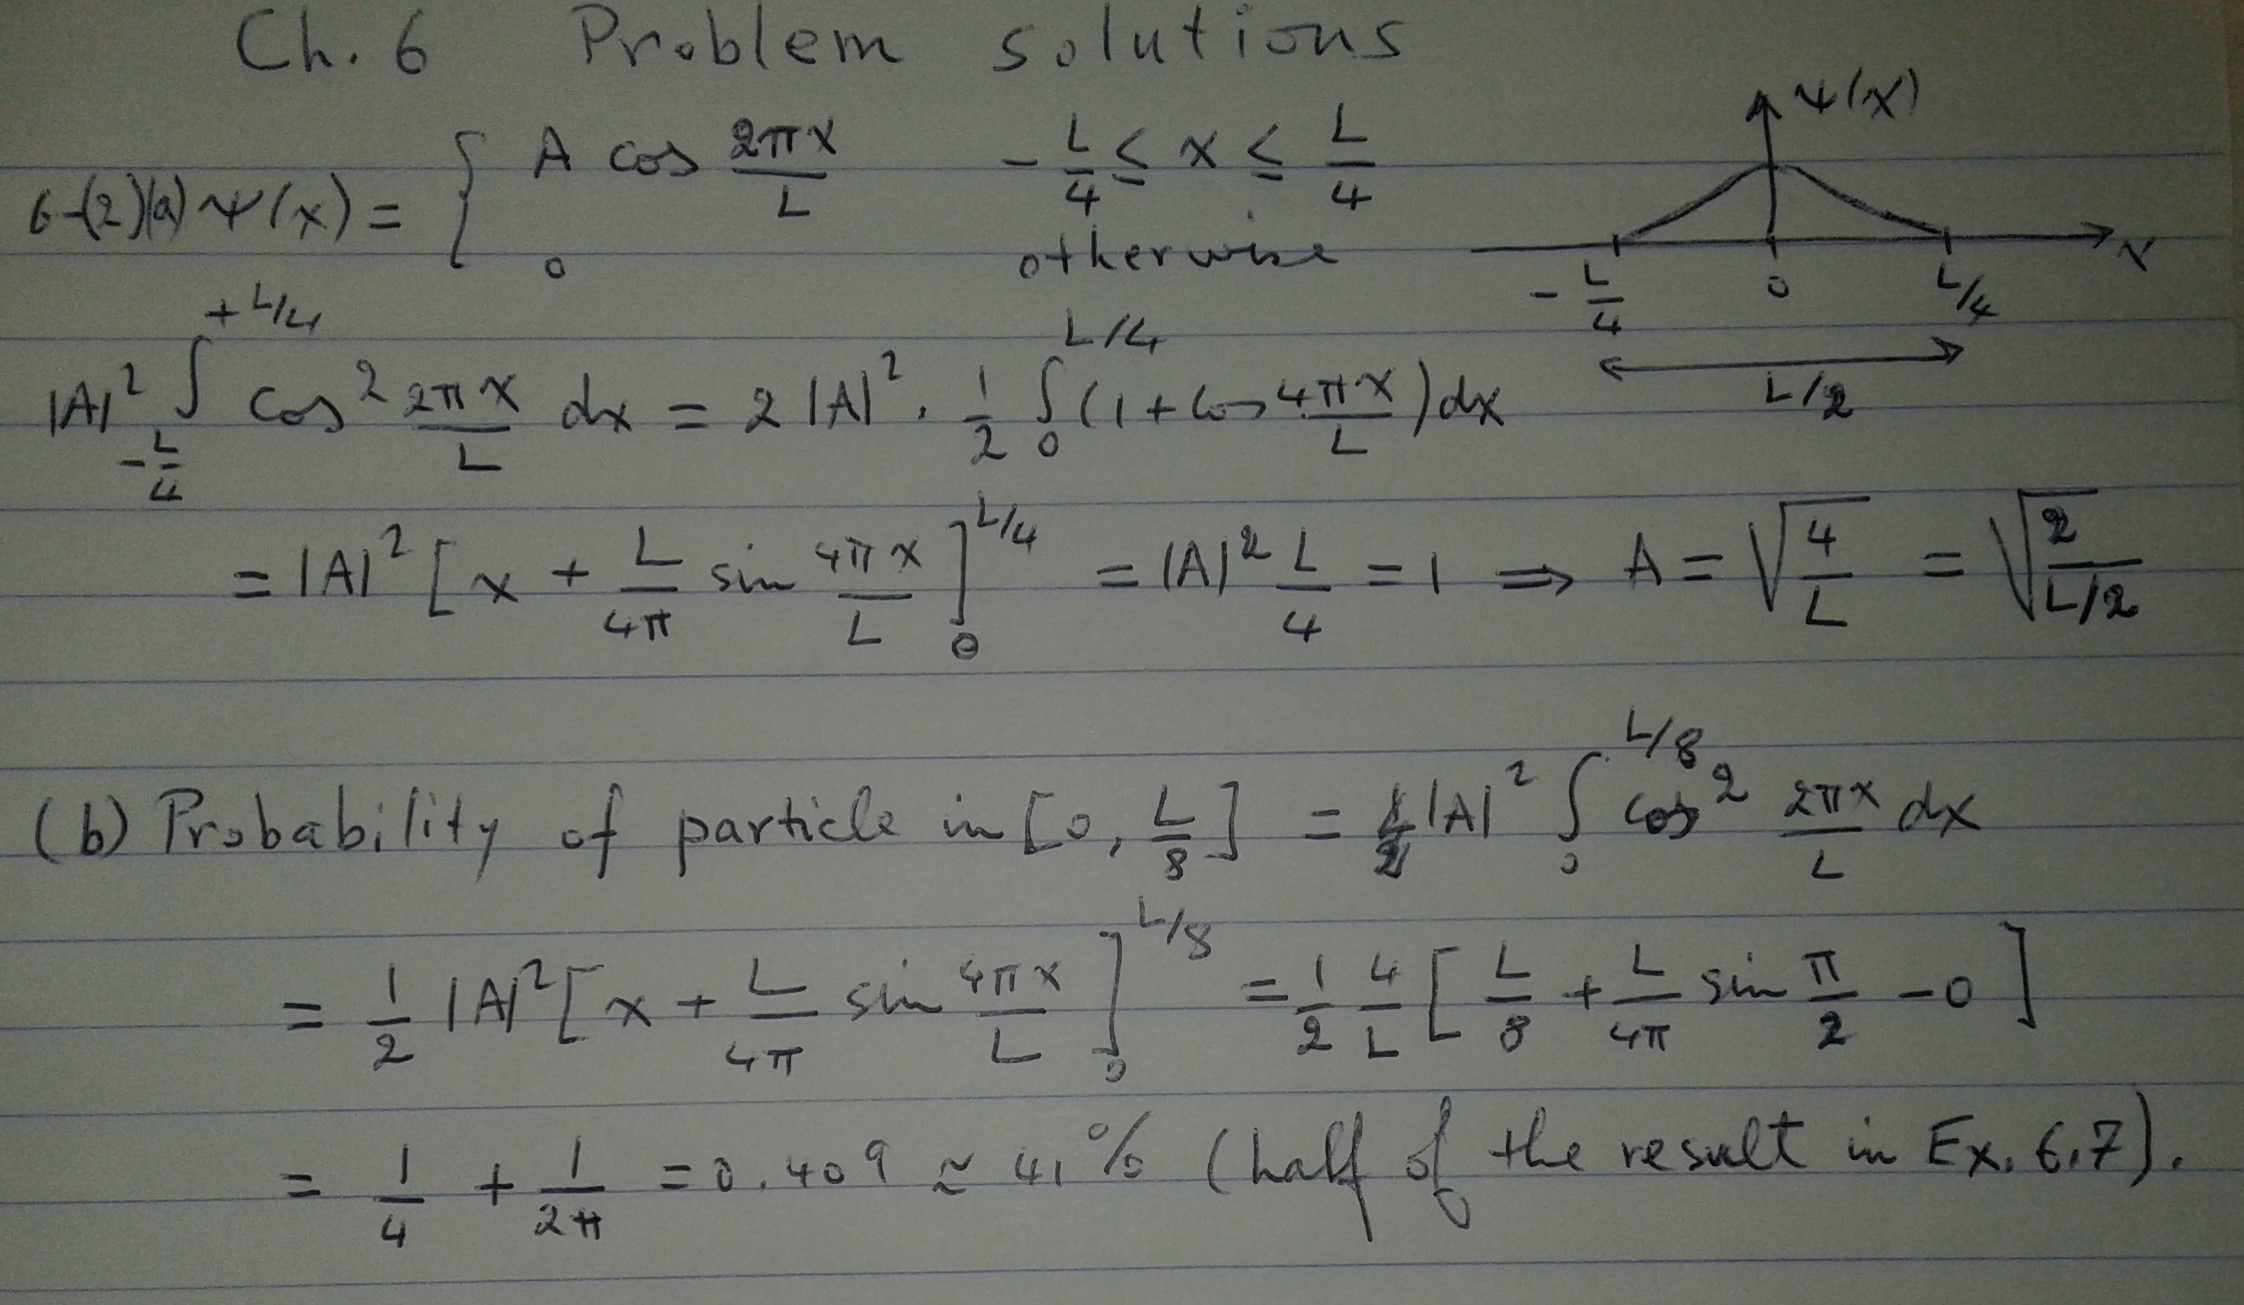 Ch. 6 Problem solutions
6-(2)(a) Ψ(x) = { A cos 2πx/L   -L/4 ≤ x ≤ L/4
0   otherwise
Ψ(x)
x
-L/4   0   L/4
L/2
|A|² ∫_{-L/4}^{+L/4} cos² 2πx/L dx = 2|A|² · 1/2 ∫_0^{L/4} (1 + cos 4πx/L) dx
= |A|² [x + L/4π sin 4πx/L]_0^{L/4} = |A|² L/4 = 1 ⇒ A = √(4/L) = √(2/(L/2))
(b) Probability of particle in [0, L/8] = |A|² ∫_0^{L/8} cos² 2πx/L dx
= 1/2 |A|² [x + L/4π sin 4πx/L]_0^{L/8} = 1/2 4/L [L/8 + L/4π sin π/2 - 0]
= 1/4 + 1/2π = 0.409 ≈ 41% (half of the result in Ex. 6.7).